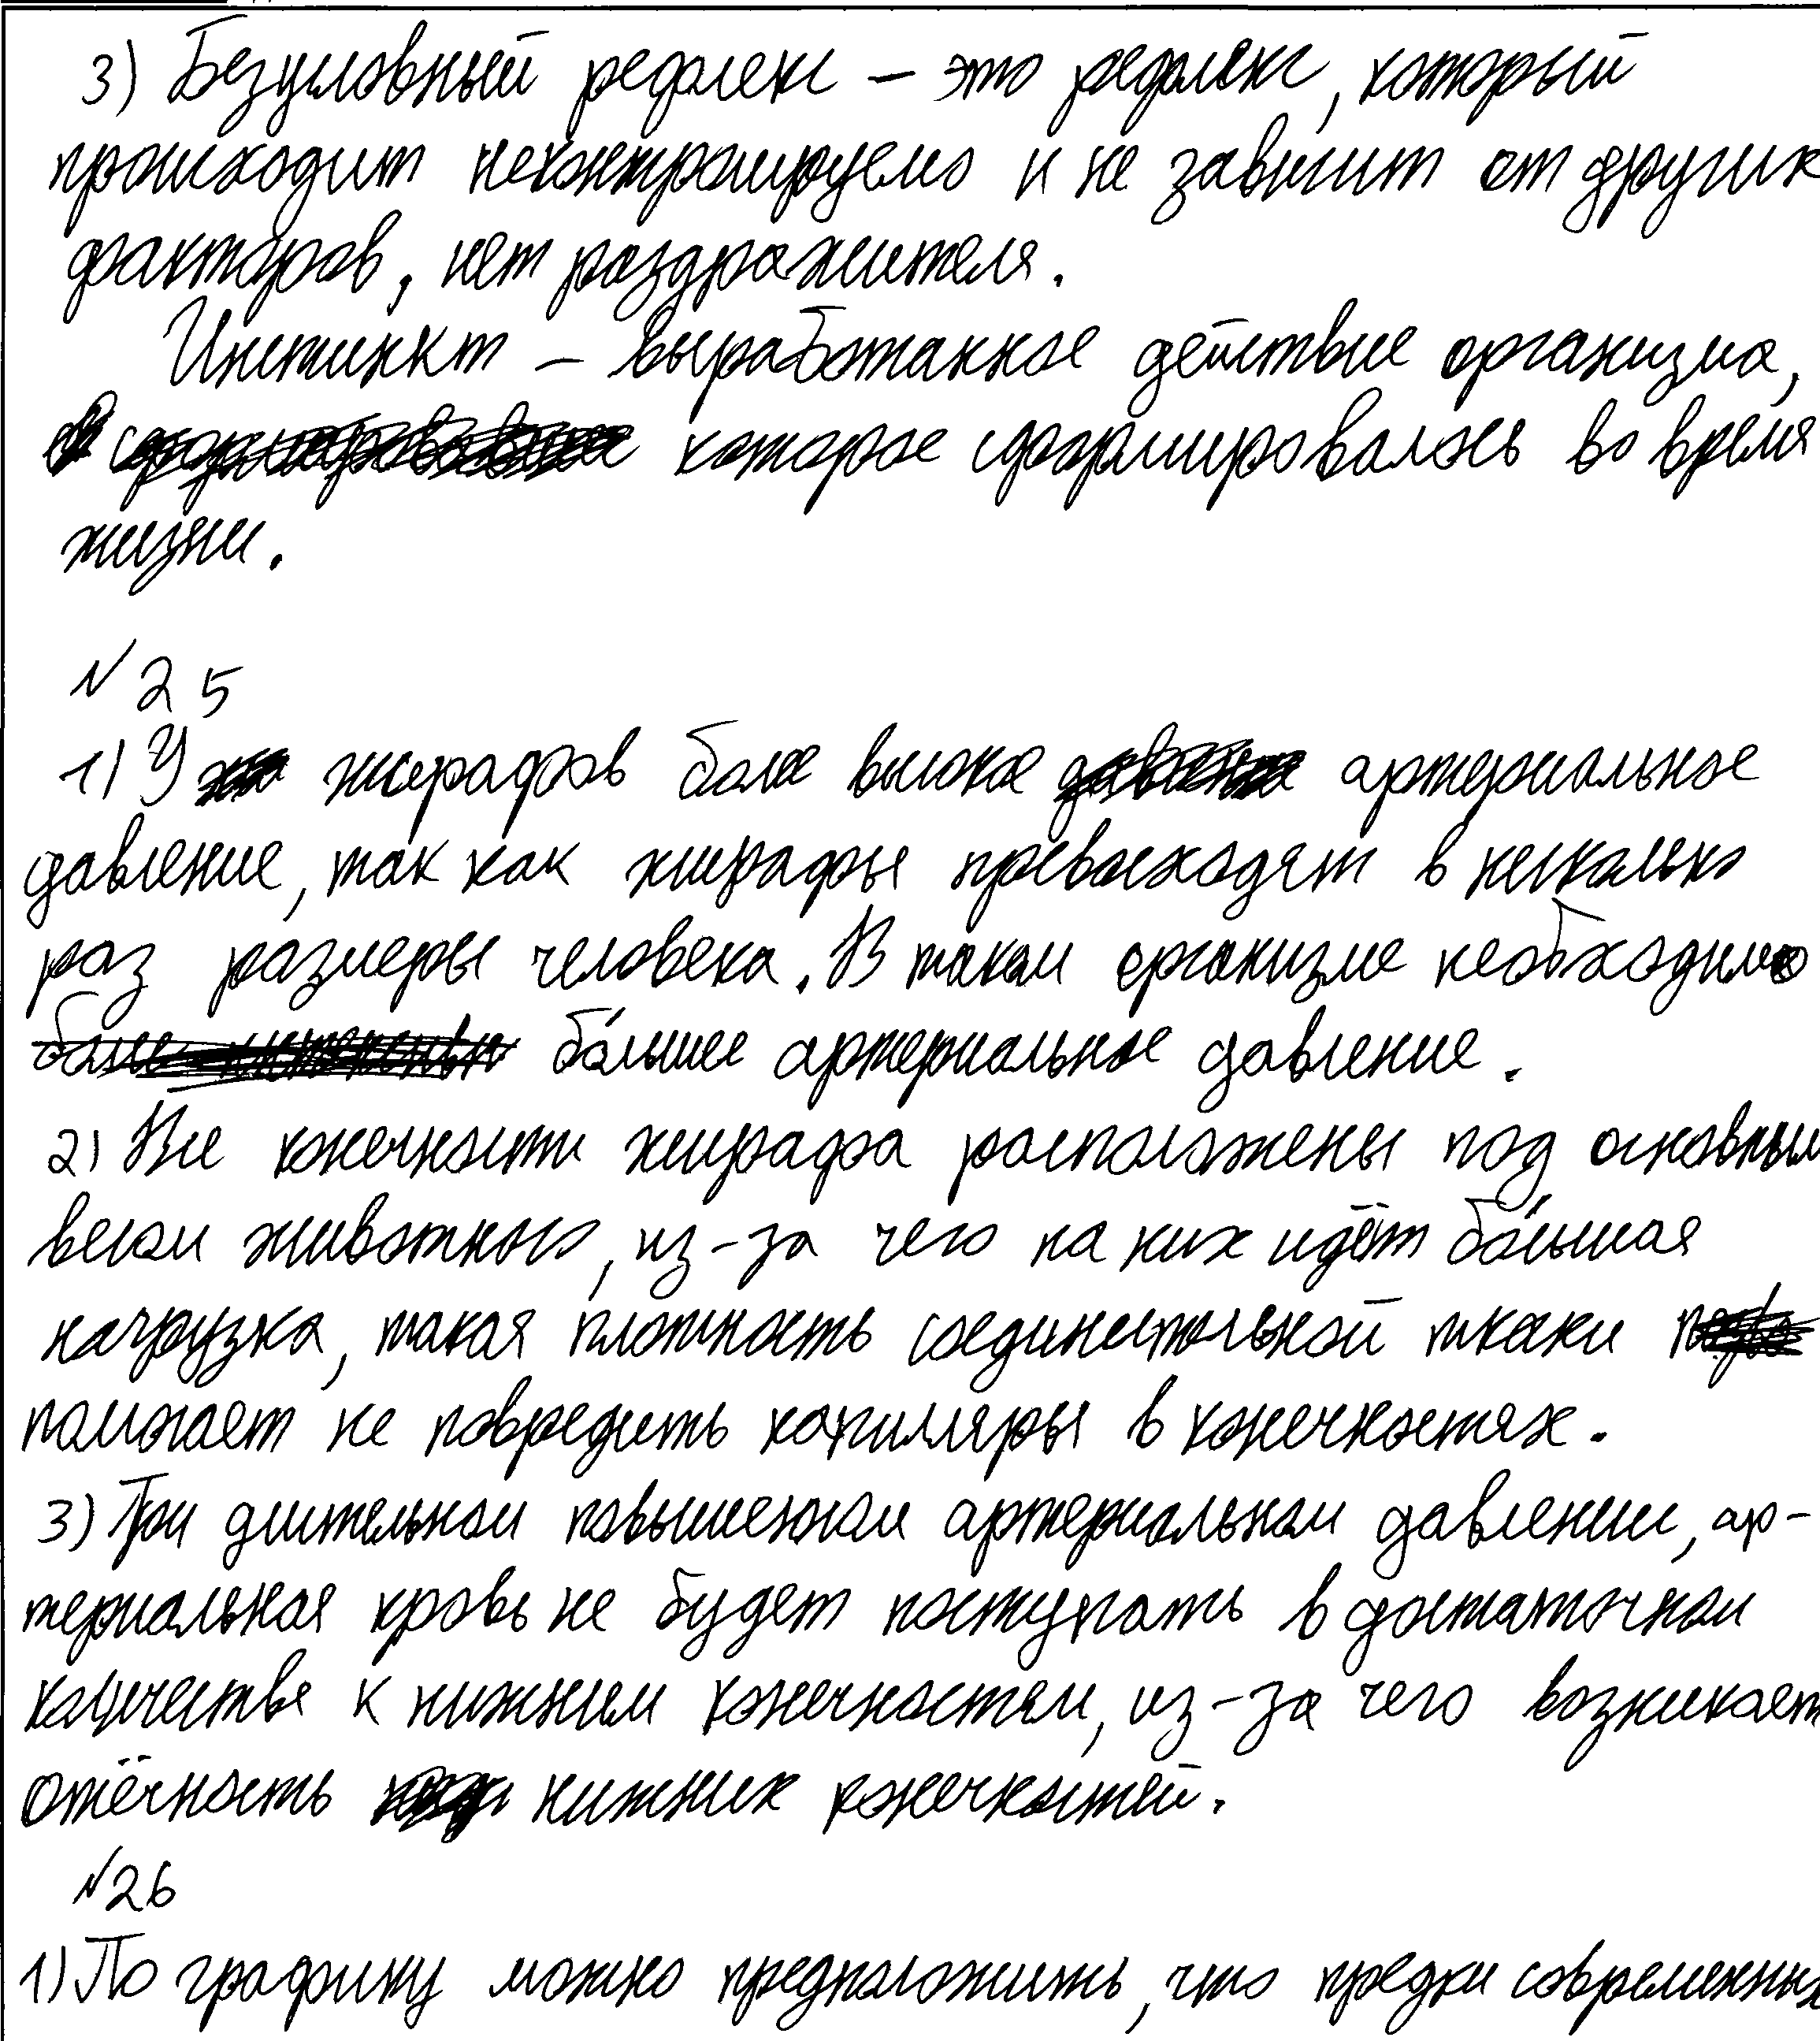 3) Безусловный рефлекс – это рефлекс, который
происходит неконтролируемо и не зависит от других
факторов, нет раздражителя.
Инстинкт – выработанное действие организма,
которое сформировалось во время
жизни.
№25
1) У жирафов более высокое артериальное
давление, так как жирафы превосходят в несколько
раз размеры человека. В таком организме необходимо
бо́льшее артериальное давление.
2) Все конечности жирафа расположены под основным
весом животного, из-за чего на них идёт бо́льшая
нагрузка, такая плотность соединительной ткани
помогает не повредить капилляры в конечностях.
3) При длительном повышенном артериальном давлении, ар-
териальная кровь не будет поступать в достаточном
количестве к нижним конечностям, из-за чего возникает
отёчность нижних конечностей.
№26
1) По графику можно предположить, что предки современных